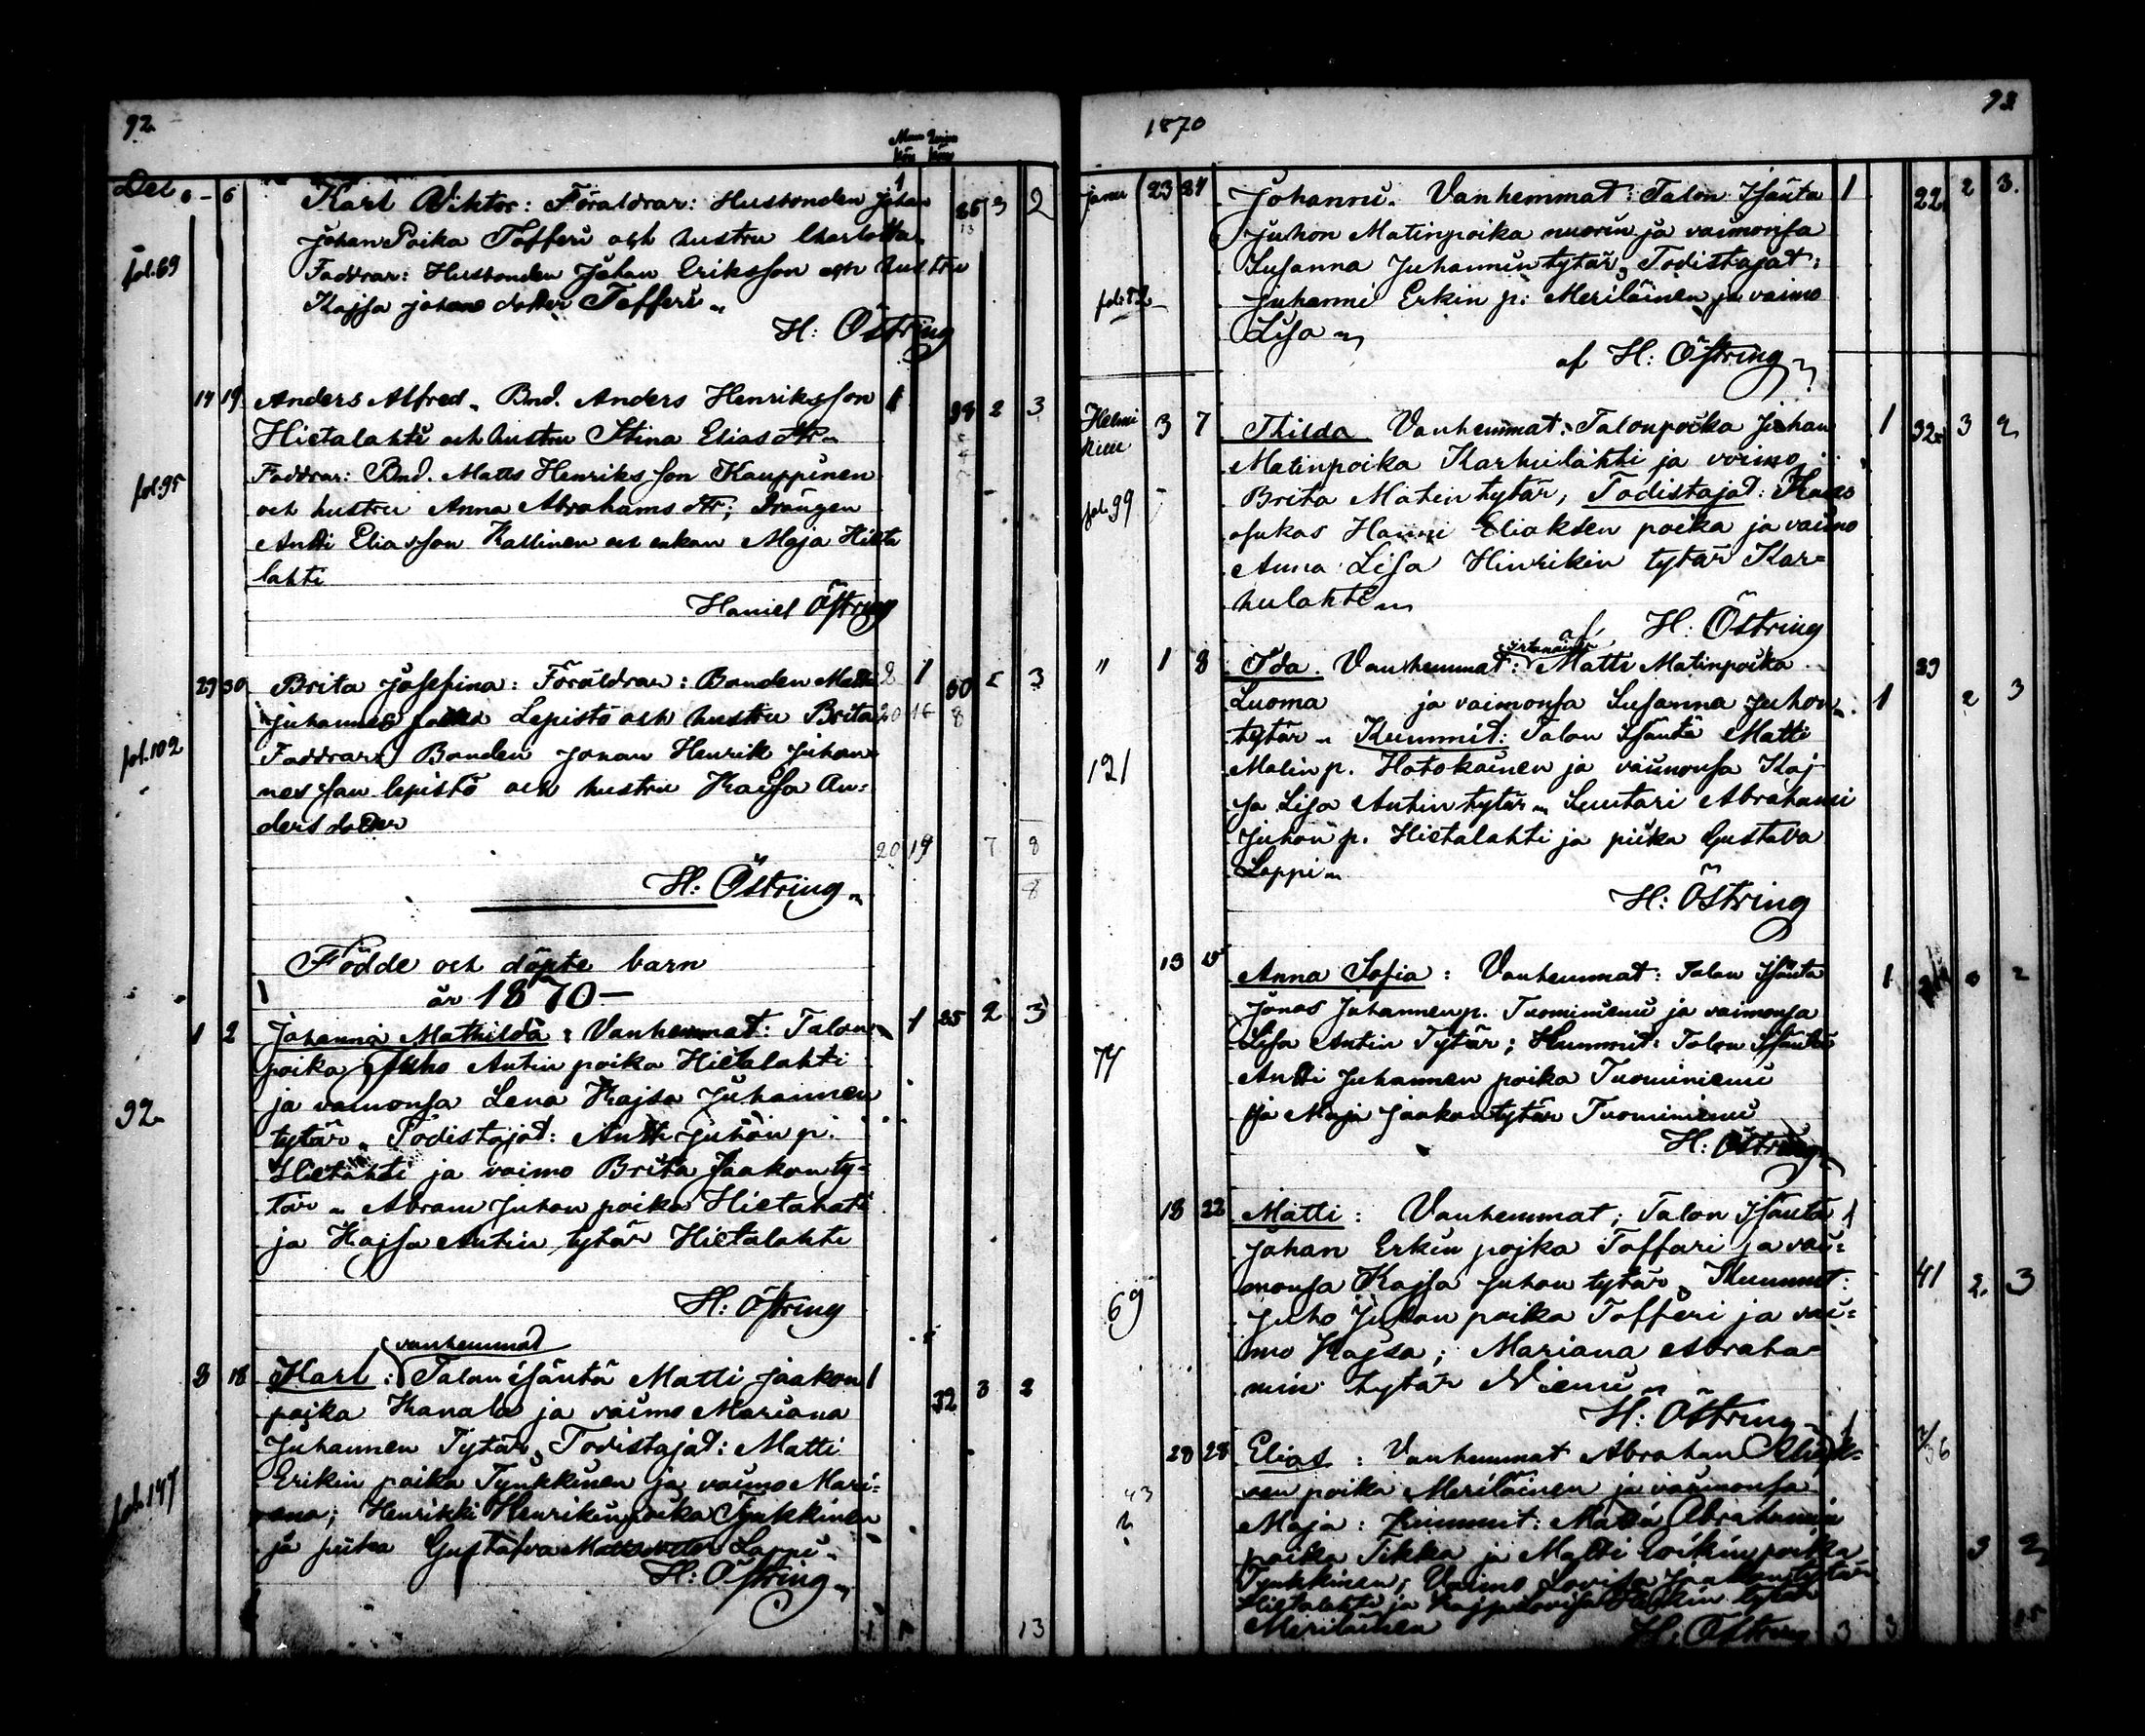 92.
Man kön Quin kön
Dec 6 - 6 Karl Viktor: Föräldrar: Husbonden Johan 1 35 3 2
Johan Poika Tofferi och hustru Charlotta.
fol.69 Faddrar: Husbonden Johan Eriksson och hustru
Kajsa johans dotter Tofferi
H: Östring
14 19 Anders Alfred. Bnd. Anders Henriksson 1 2 3
Hietalahti och hustru Stina Elias dtr
fol.95 Faddrar: Bnd. Matts Henriksson Kauppinen
och hustru Anna Abrahams dtr; Drängen
Antti Eliasson Kallinen och enkan Maja Hieta
lahti
Haniel Östring
29 30 Brita Josefina: Föräldrar: Bonden Matts 2 1 30 2 3
Juhannes Lepistö och hustru Brita 20 16 8
fol.102 Faddrar: Bonden Jonan Henrik Juhan
nes son lepistö och hustru Kaisa An:
ders dotter
20 19 7 8
8
H: Östring
Födde och döpte barn
år 1870 -
1 2 Johanna Mathilda: Vanhemmat: Talon 1 35 2 3
poika Juho Antin poika Hietalahti
ja vaimonsa Lena Kajsa Juhannen
92. tytär. Todistajat: Antti Juhon p.
Hietahti ja vaimo Brita Jaakon ty-
tär. Abram Juhon poika Hietahati
ja Kajsa Antin tytär Hietalahti
H: Östring
vanhemmat
3 18 Karl: Talon isäntä Matti Jaakon 1 32 3 2
poika Kanala ja vaimo Mariana
Juhannen Tytär. Todistajat: Matti
Erikin poika Tynkkinen ja vaimo Mari:
fol.147 ana; Henrikki Henrikin poika Tynkkinen
ja piika Gustafva Lappi.
H: Östring
1 1 13
1870 93
janu 23 24 Johanni. Vanhemmat: Talon Isäntä 1 22 2 3.
Juhon Matinpoika nuorin ja vaimonsa
Susanna Juhannin tytär, Todistajat:
Juhanni Erkin p: Meriläinen ja vaimo
Lisa
af H: Östring
Helmi kuu 3 7 Thilda Vanhemmat: Talonpoika Johan 1 32 3 2
Matinpoika Karhulahti ja voimo
fol.99 Brita Matin tytär, Todistajat:
asukas Hanni Eliaksen poika ja vaimo
Anna Lisa Hinrikin tytär Kar=
hulahti
af H: Östring
" 1 8 Ida. Vanhemmat: Matti Matinpoika 39
Luoma ja vaimonsa Susanna Juhon 1 2 3
tytär. Kummit: Talon Isäntä Matti
121 Matin p. Hotokainen ja vaimonsa Kaj
sa Lisa Antin tytär. Suutari Abrahami
Juhon p. Hietalahti ja piika Gustava
Lappi
H: Östring
13 15 Anna Sofia: Vanhemmat: Talon Isäntä 1 2
Jonas Juhannen p. Tuominiemi ja vaimonsa
Lisa Antin Tytär; Kummit: Talon Isäntä
Antti Juhannen poika Tuominiemi
ja Maja Jaakon tytär Tuominiemi
H: Östring
18 22 Matti: Vanhemmat; Talon Isäntä 1
Johan Erkin pojka Toffari ja vai=
monsa Kajsa Juhon tytär. Kummit: 41 2. 3
69 Juho Juhon poika Tofferi ja vai=
mo Kajsa; Mariana Abraha=
min tytär Niemi
H: Östring
28 28 Elias: Vanhemmat Abraham 1
sen poika Meriläinen ja vaimonsa
Maja: Kummit: Abrahamin
poika Tikka ja Matti poika 3 2
Tynkkinen; Vaimo Lovisa Jaakon tytär
Hietalahti ja tytär
Meriläinen
H: Östring 3 3